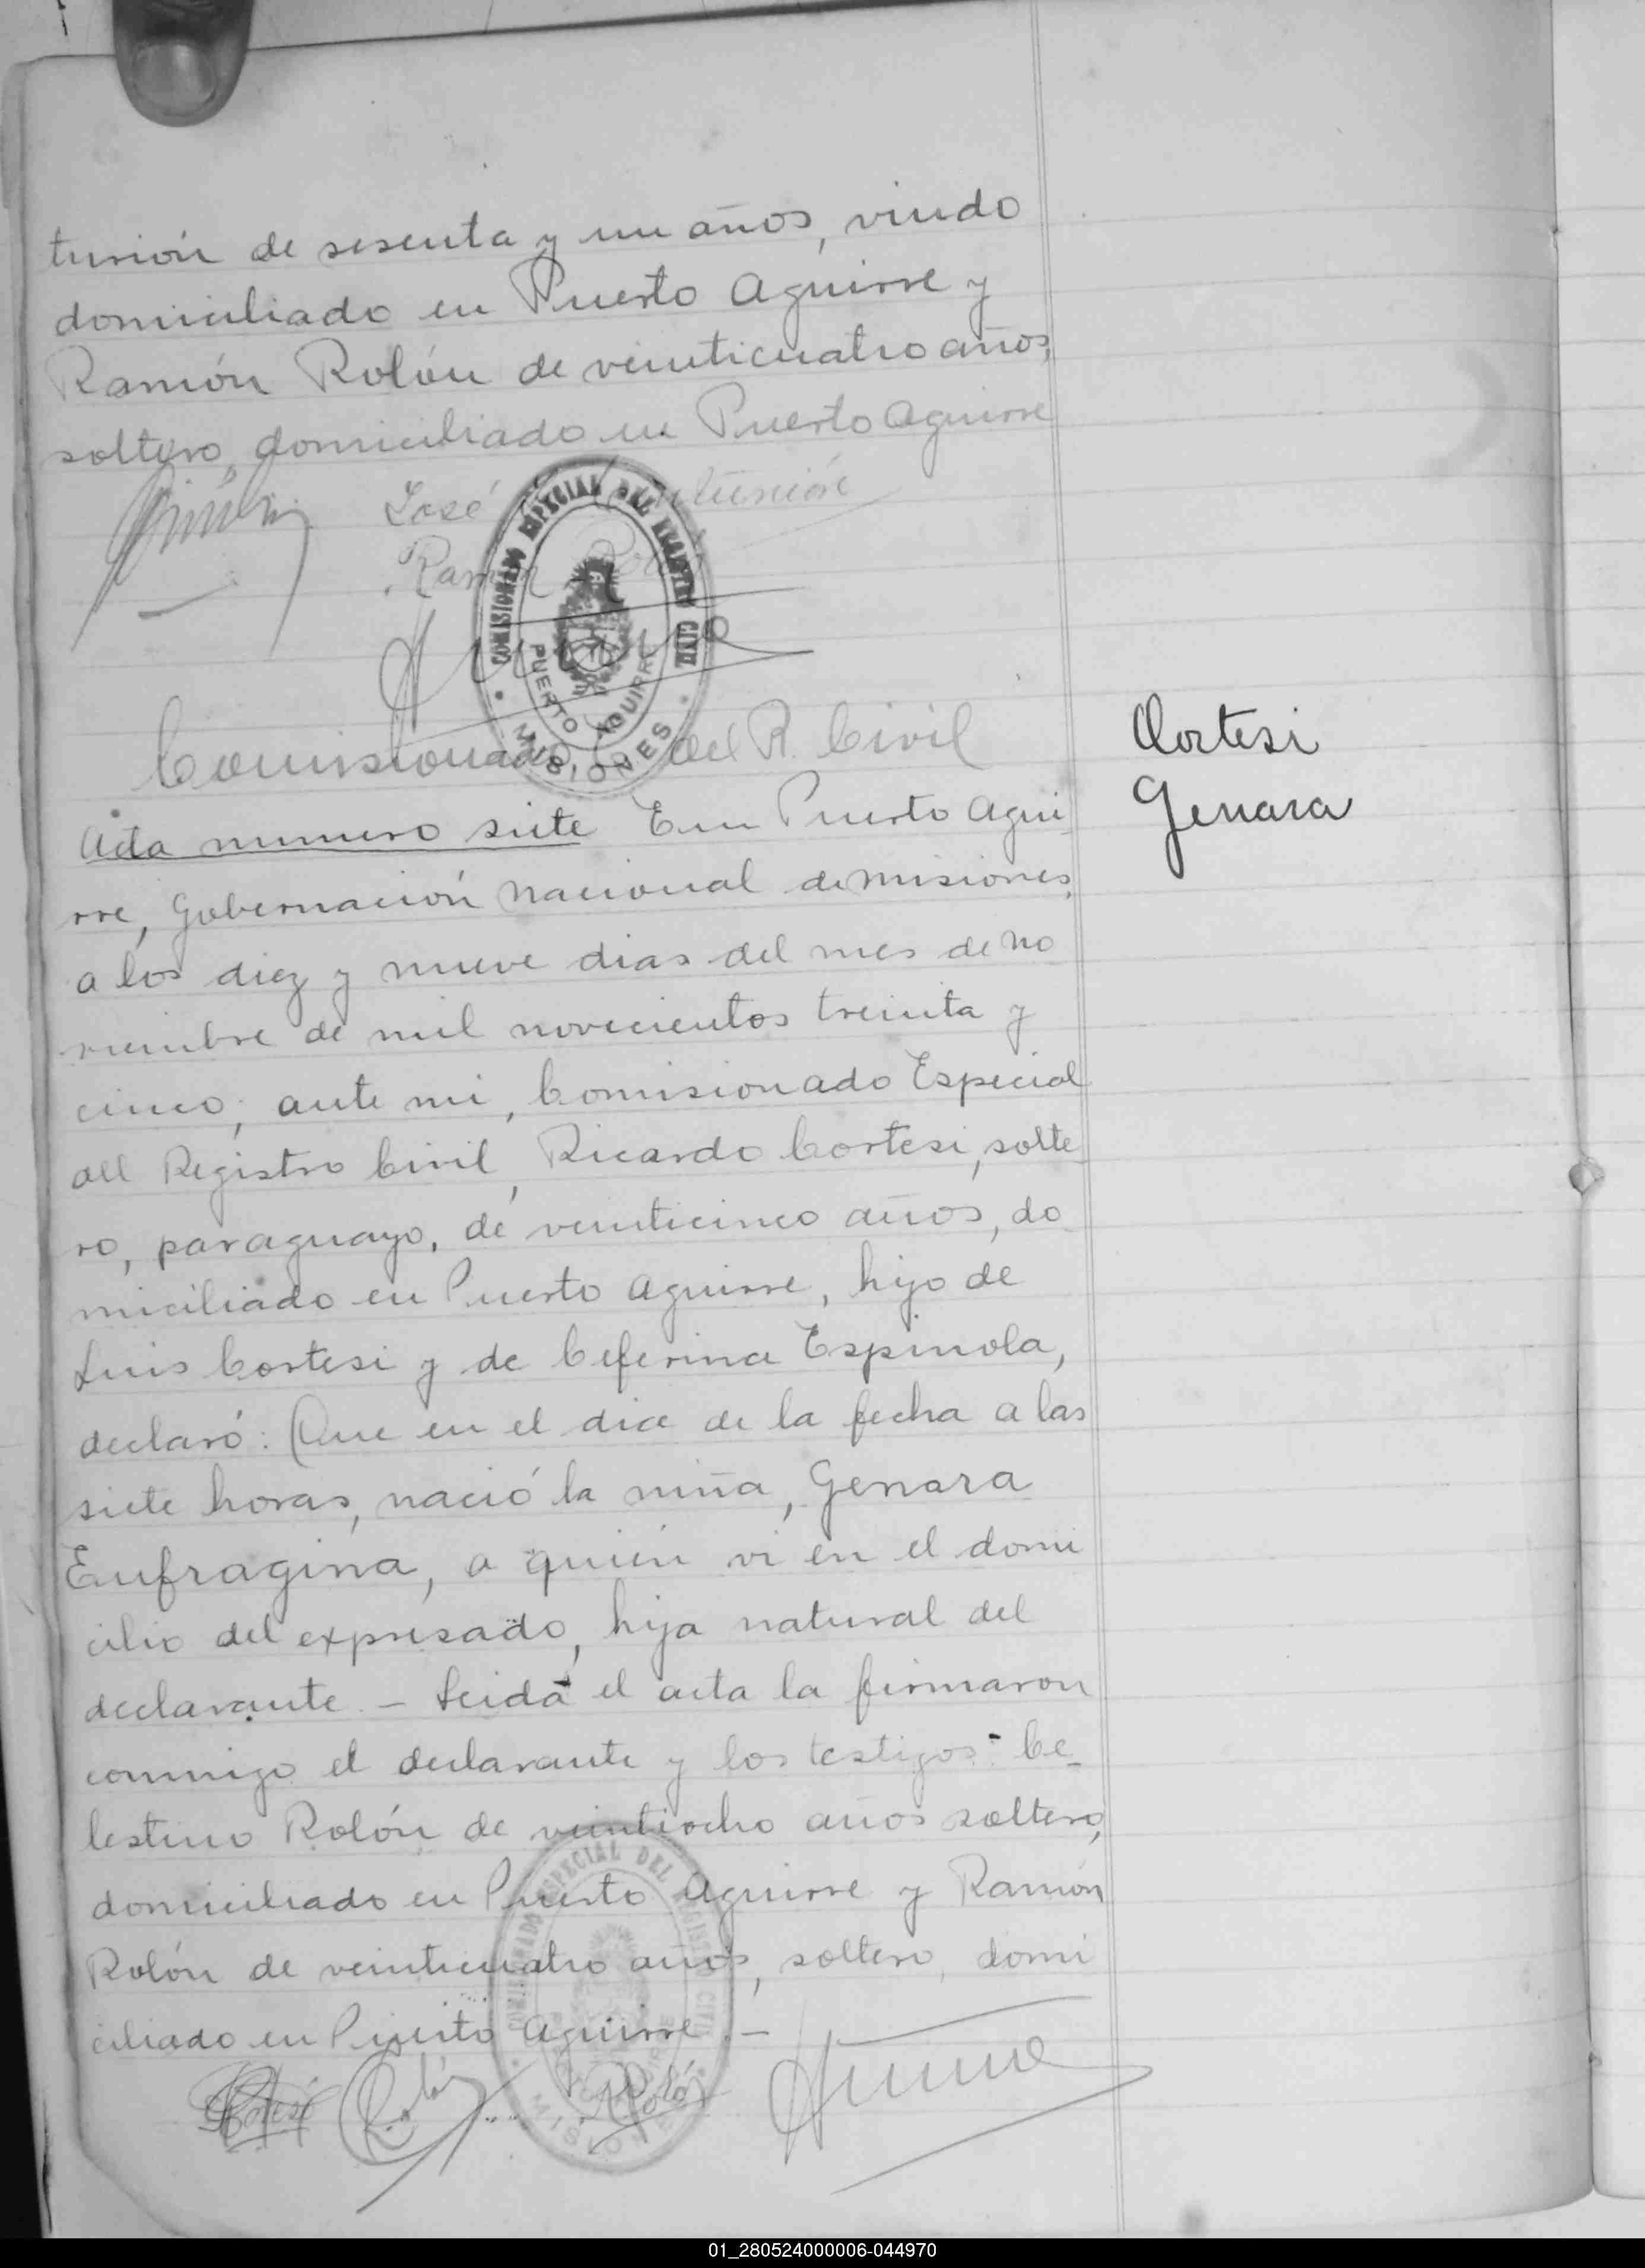 turión de sesenta y un años, viudo
domiciliado en Puerto Aguirre y
Ramón Rolón de veinticuatro años,
soltero, domiciliado en Puerto Aguirre
José
Ramón Rolón
COMISIONADO ESPECIAL DEL REGISTRO CIVIL
PUERTO AGUIRRE
MISIONES
Comisionado del R. Civil
Cortesi
Genara
Acta numero siete En Puerto Agui
rre, Gobernación Nacional de Misiones,
a los diez y nueve dias del mes de no
viembre de mil novecientos treinta y
cinco, ante mi, Comisionado Especial
del Registro Civil, Ricardo Cortesi, solte
ro, paraguayo, de veinticinco años, do
miciliado en Puerto Aguirre, hijo de
Luis Cortesi y de Ceferina Espinola,
declaró: Que en el dia de la fecha a las
siete horas, nació la niña, Genara
Eufragina, a quien vi en el domi
cilio del expresado, hija natural del
declarante. - Leida el acta la firmaron
conmigo el declarante y los testigos: Ce-
lestino Rolón de veintiocho años soltero,
domiciliado en Puerto Aguirre y Ramón
Rolón de veinticuatro años, soltero, domi
ciliado en Puerto Aguirre. -
COMISIONADO ESPECIAL DEL REGISTRO CIVIL
PUERTO AGUIRRE
MISIONES
Rolón
Rolón
01_280524000006-044970